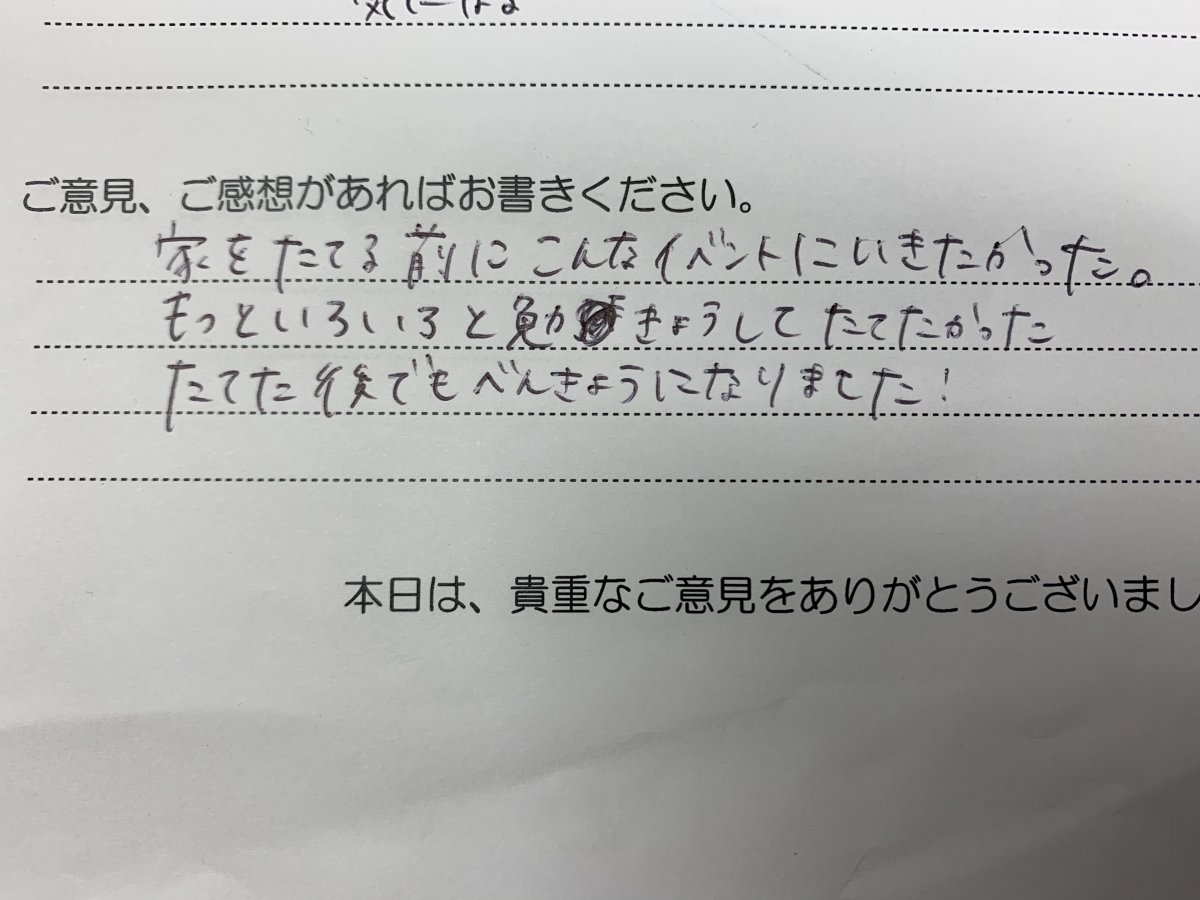 ご意見、ご感想があればお書きください。
家をたてる前にこんなイベントにいきたかった。
もっといろいろと勉きょうしてたてたかった
たてた後でもべんきょうになりました!
本日は、貴重なご意見をありがとうございまし